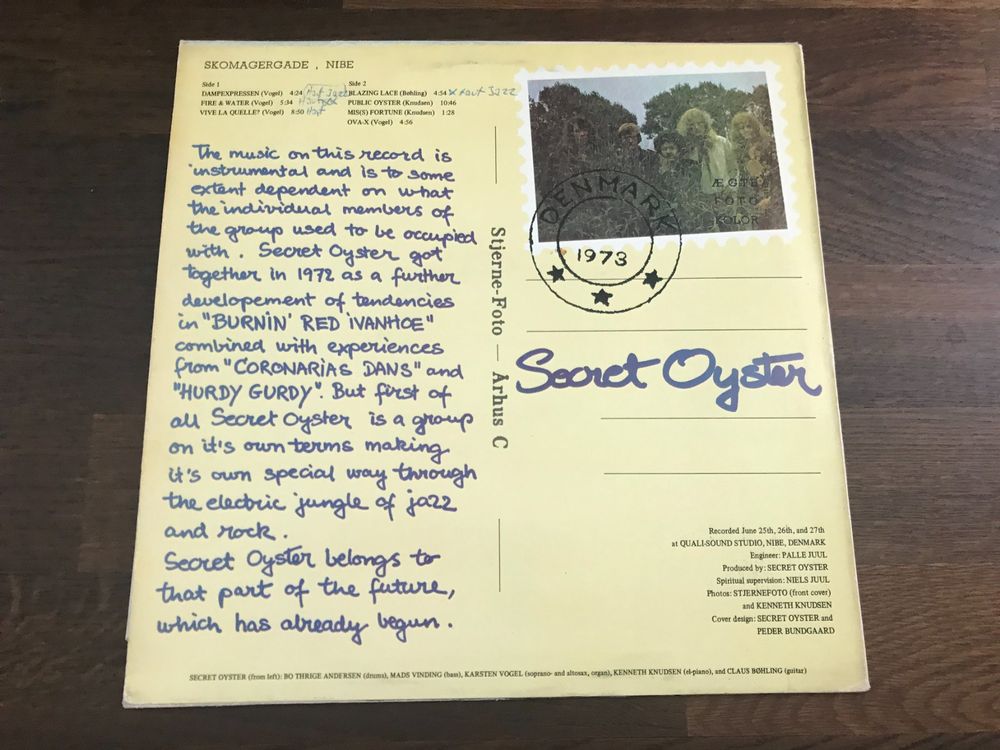 SKOMAGERGADE , NIBE
Side 1
DAMPEXPRESSEN (Vogel) 4:24 Jazz
FIRE & WATER (Vogel) 5:34
VIVE LA QUELLE? (Vogel) 8:50
Side 2
BLAZING LACE (Bøhling) 4:54 x Raut Jazz
PUBLIC OYSTER (Knudsen) 10:46
MIS(S) FORTUNE (Knudsen) 1:28
OVA-X (Vogel) 4:56
The music on this record is
instrumental and is to some
extent dependent on what
the individual members of
the group used to be occupied
with. Secret Oyster got
together in 1972 as a further
developement of tendencies
in "BURNIN' RED IVANHOE"
combined with experiences
from "CORONARIAS DANS" and
"HURDY GURDY". But first of
all Secret Oyster is a group
on it's own terms making
it's own special way through
the electric jungle of jazz
and rock.
Secret Oyster belongs to
that part of the future,
which has already begun.
Stjerne-Foto — Århus C
ÆGTE
FOTO
KOLOR
DENMARK
1973
Secret Oyster
Recorded June 25th, 26th, and 27th
at QUALI-SOUND STUDIO, NIBE, DENMARK
Engineer: PALLE JUUL
Produced by: SECRET OYSTER
Spiritual supervision: NIELS JUUL
Photos: STJERNEFOTO (front cover)
and KENNETH KNUDSEN
Cover design: SECRET OYSTER and
PEDER BUNDGAARD
SECRET OYSTER (from left): BO THRIGE ANDERSEN (drums), MADS VINDING (bass), KARSTEN VOGEL (soprano- and altosax, organ), KENNETH KNUDSEN (el-piano), and CLAUS BØHLING (guitar)